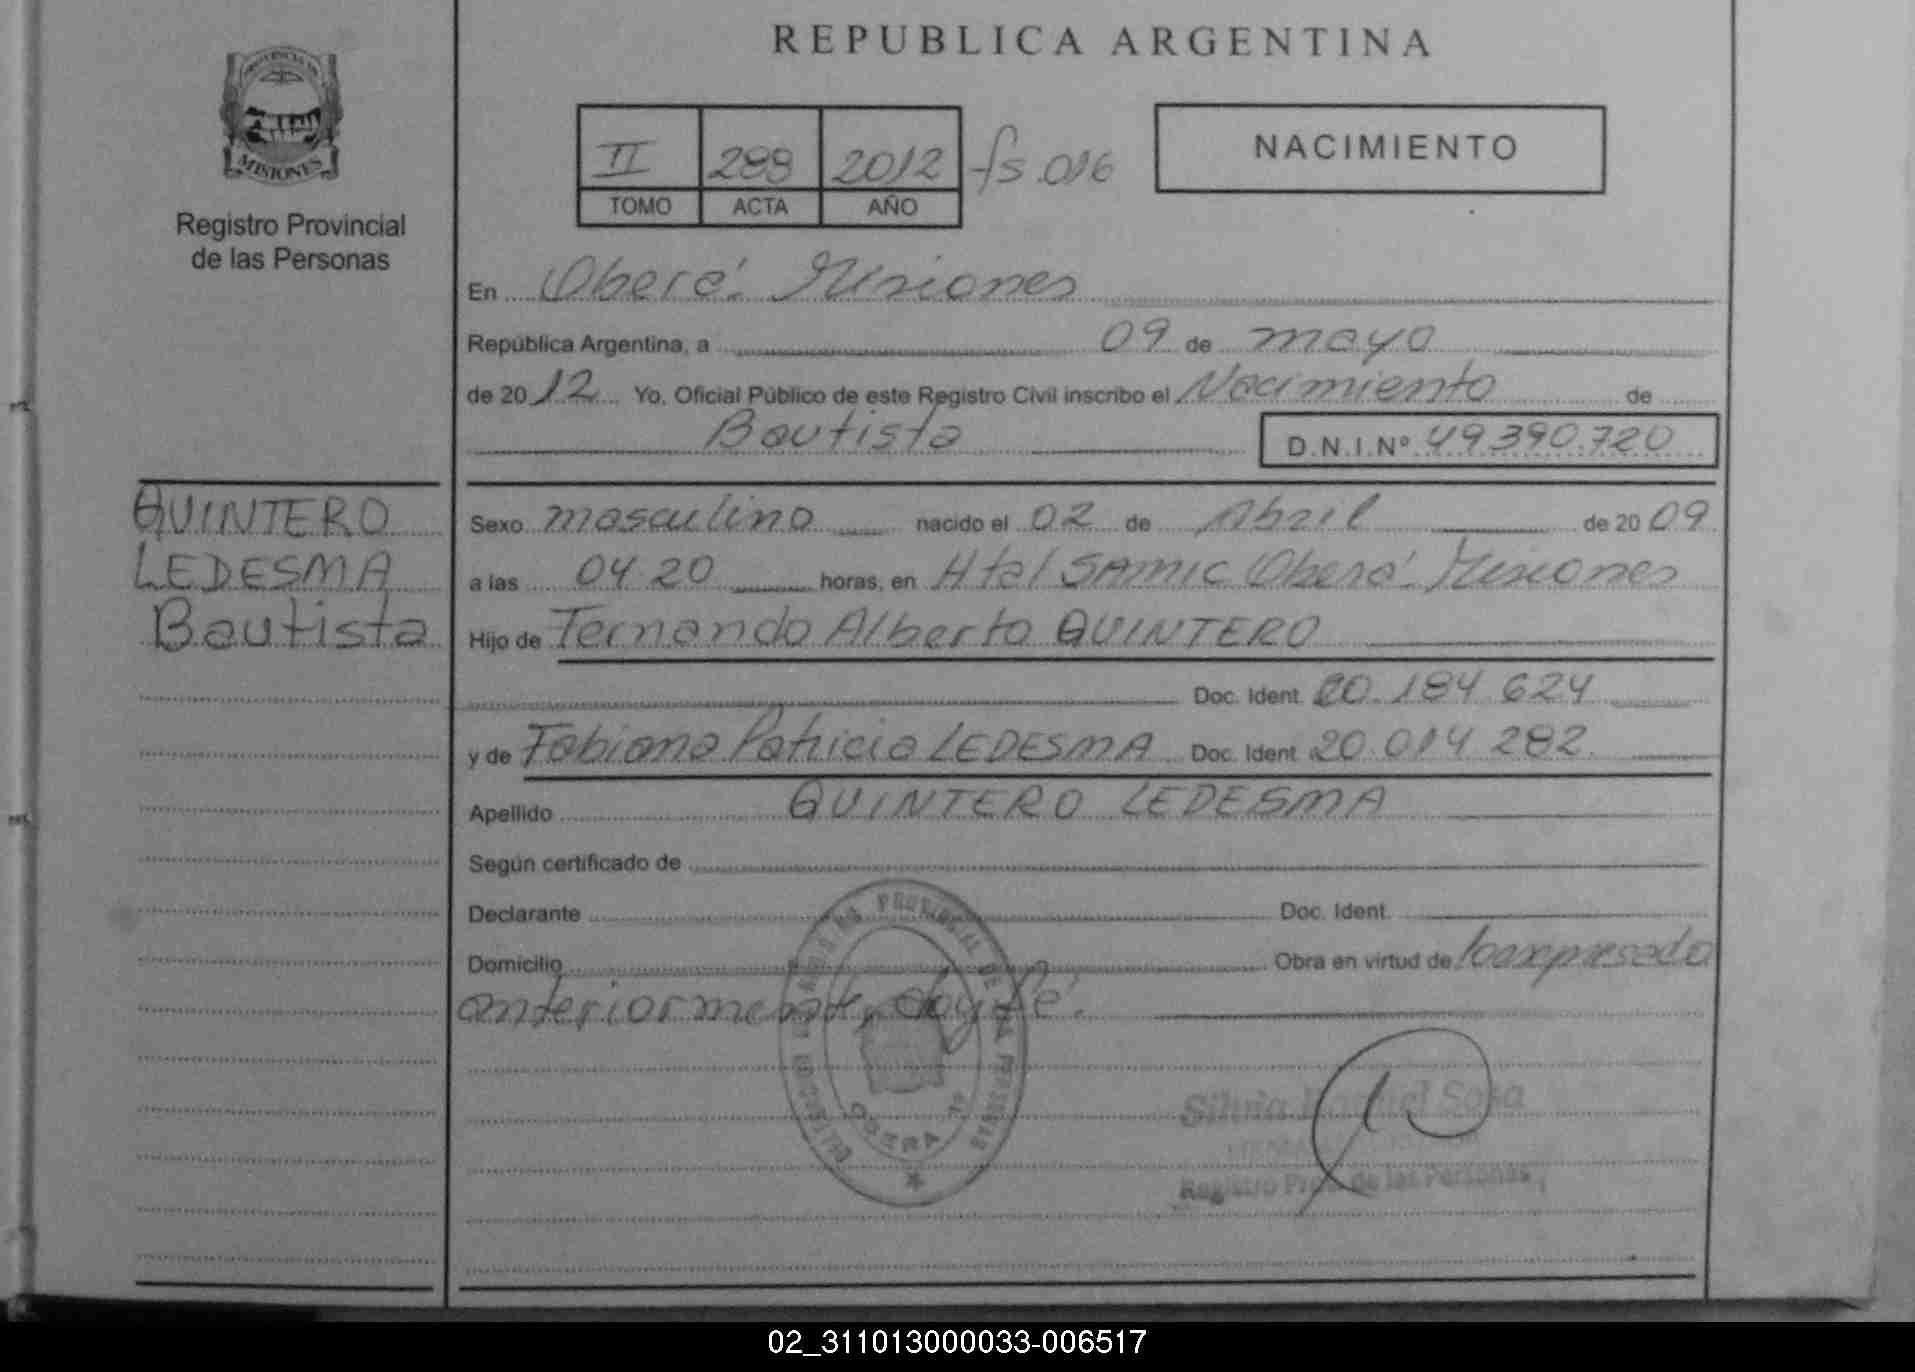 REPUBLICA ARGENTINA
PROVINCIA DE
MISIONES
Registro Provincial
de las Personas
II 288 2012 fs.016
TOMO ACTA AÑO
NACIMIENTO
En Oberá. Misiones
República Argentina, a 09 de mayo
de 2012 Yo. Oficial Público de este Registro Civil inscribo el Nacimiento de
Bautista D.N.I.Nº 49.390.720
QUINTERO
LEDESMA
Bautista
Sexo masculino nacido el 02 de Abril de 2009
a las 04.20 horas, en Htal SAMIC Oberá. Misiones
Hijo de Fernando Alberto QUINTERO
Doc. Ident. 20.184.624
y de Fabiana Patricia LEDESMA Doc. Ident. 20.014.282.
Apellido QUINTERO LEDESMA
Según certificado de
Declarante Doc. Ident.
Domicilio Obra en virtud de lo expresado
anteriormente, doy fé.
OBERA
Silvia Sosa
Registro Prov. de las Personas
02_311013000033-006517